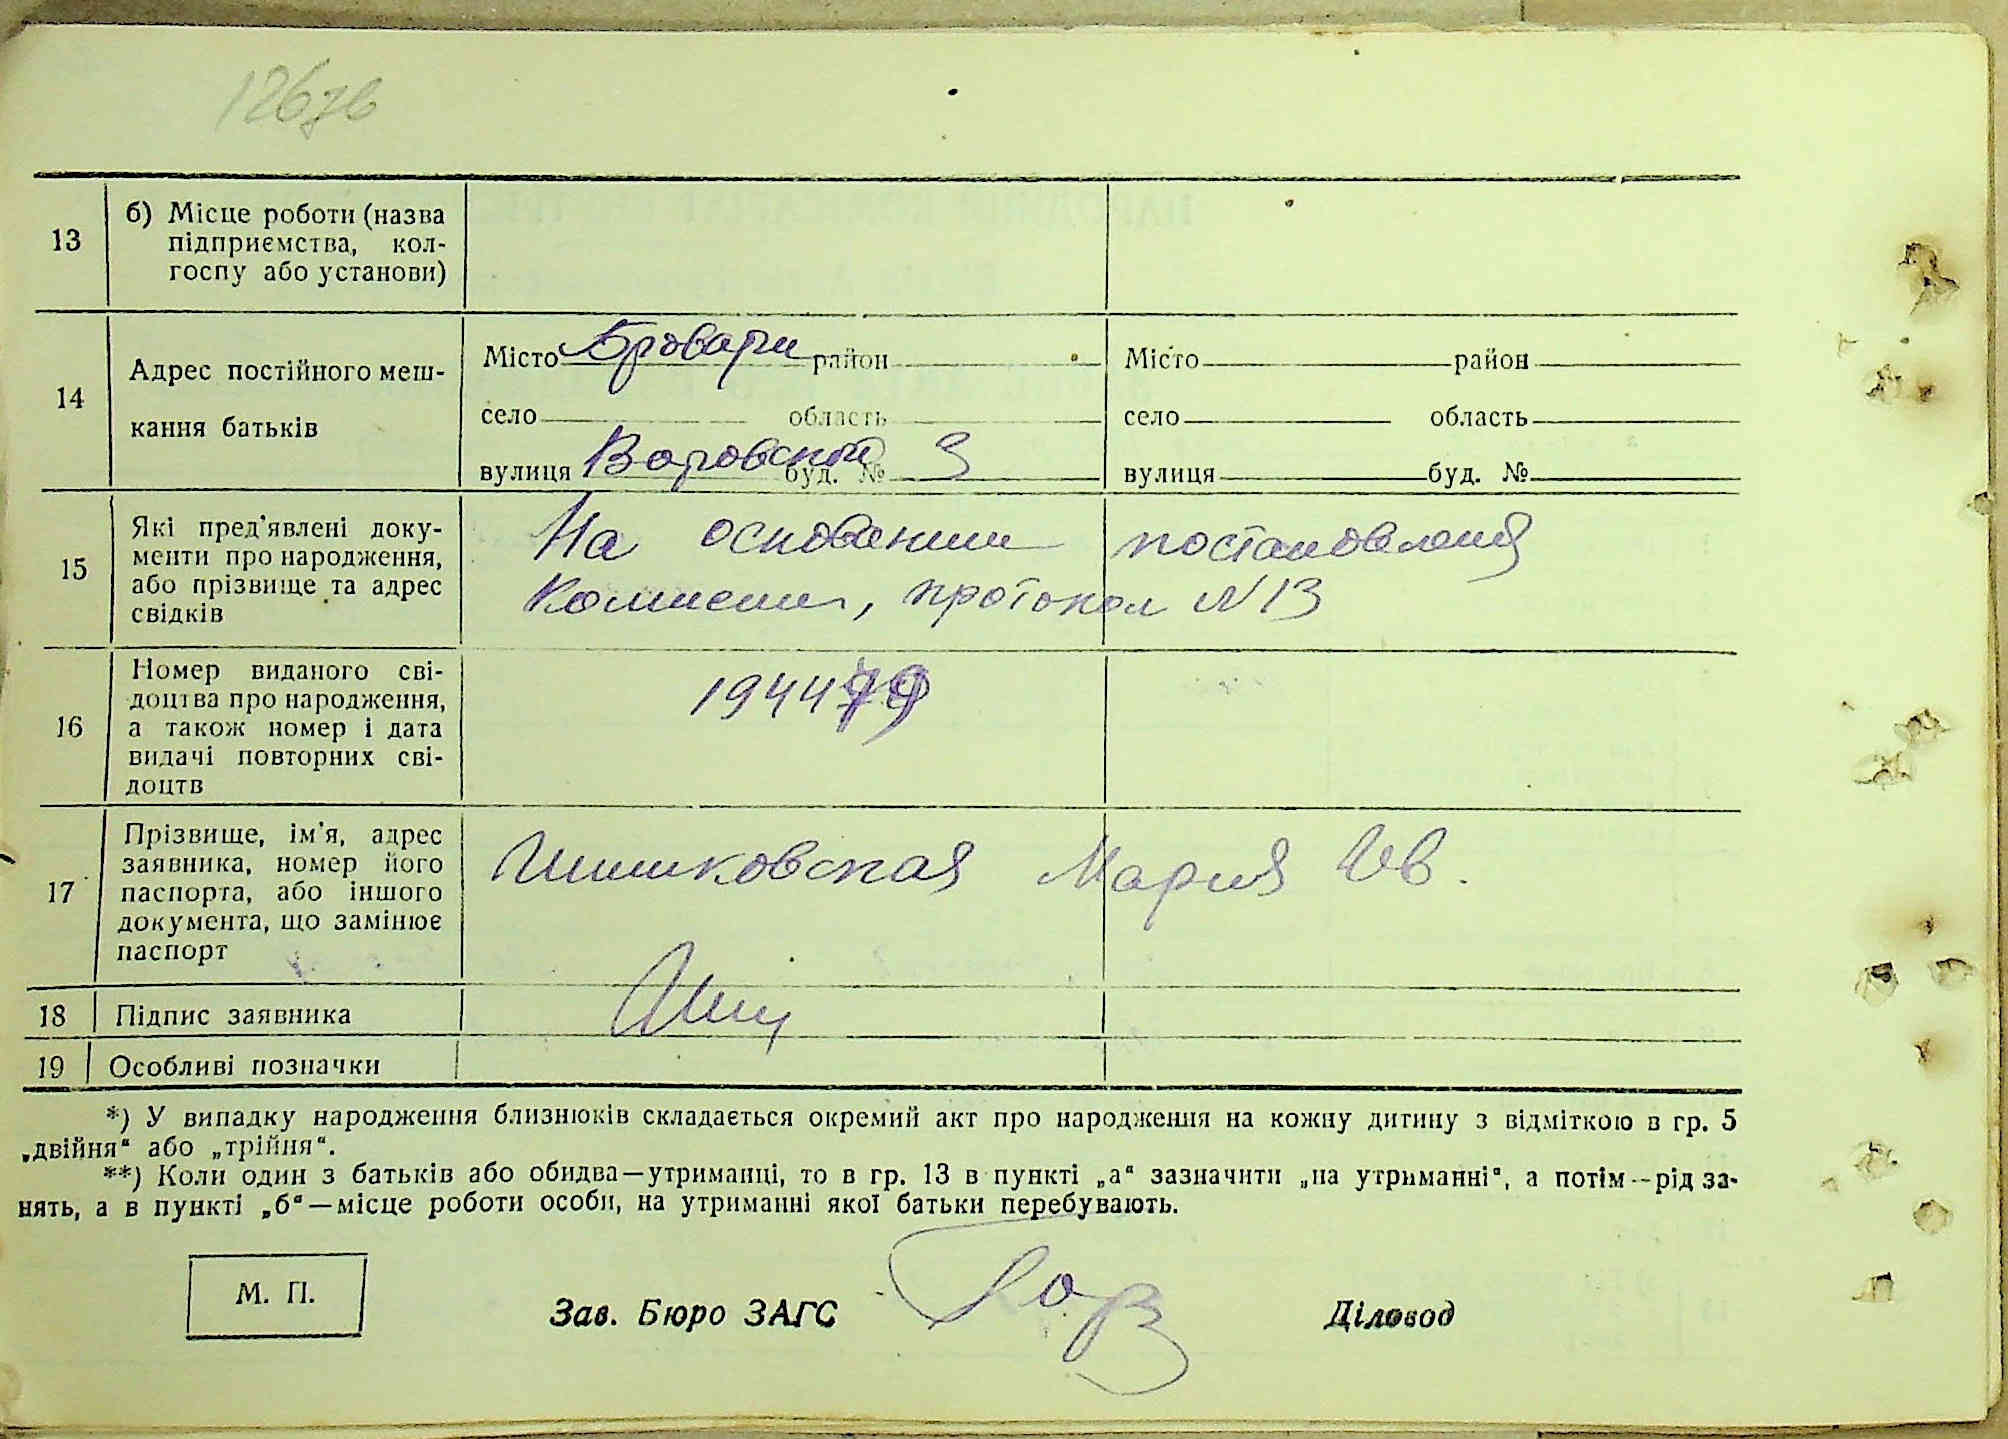 126зв
13
б) Місце роботи (назва
підприємства, кол-
госпу або установи)
14
Адрес постійного меш-
кання батьків
Місто Бровари район
село область
вулиця Воровской буд. № 3
Місто район
село область
вулиця буд. №
15
Які пред'явлені доку-
менти про народження,
або прізвище та адрес
свідків
На основании постановления
Комиссии, протокол N 13
16
Номер виданого сві-
доцтва про народження,
а також номер і дата
видачі повторних сві-
доцтв
17
Прізвище, ім'я, адрес
заявника, номер його
паспорта, або іншого
документа, що замінює
паспорт
Шишковская Мария Ив.
18
Підпис заявника
19
Особливі позначки
*) У випадку народження близнюків складається окремий акт про народження на кожну дитину з відміткою в гр. 5
„двійня“ або „трійня“.
**) Коли один з батьків або обидва—утриманці, то в гр. 13 в пункті „а“ зазначити „на утриманні“, а потім—рід за-
нять, а в пункті „б“—місце роботи особи, на утриманні якої батьки перебувають.
М. П.
Зав. Бюро ЗАГС
Діловод